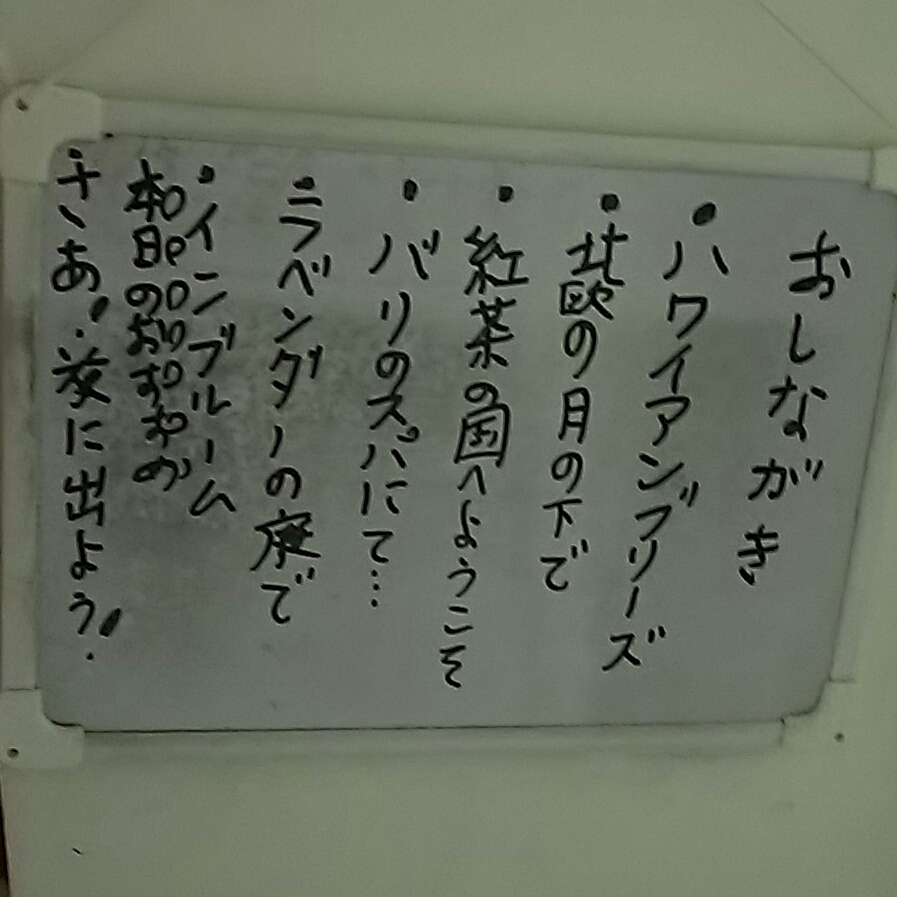 おしながき
・ハワイアンブリーズ
・北欧の月の下で
・紅茶の国へようこそ
・バリのスパにて…
・ラベンダーの庭で
・インブルーム
本日のおすすめ
・さあ!旅に出よう!